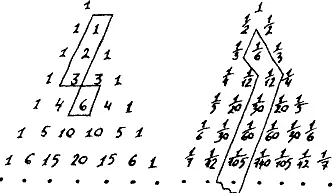 1
1 1
1 2 1
1 3 3 1
1 4 6 4 1
1 5 10 10 5 1
1 6 15 20 15 6 1
1
1/2 1/2
1/3 1/6 1/3
1/4 1/12 1/12 1/4
1/5 1/20 1/30 1/20 1/5
1/6 1/30 1/60 1/60 1/30 1/6
1/7 1/42 1/105 1/140 1/105 1/42 1/7